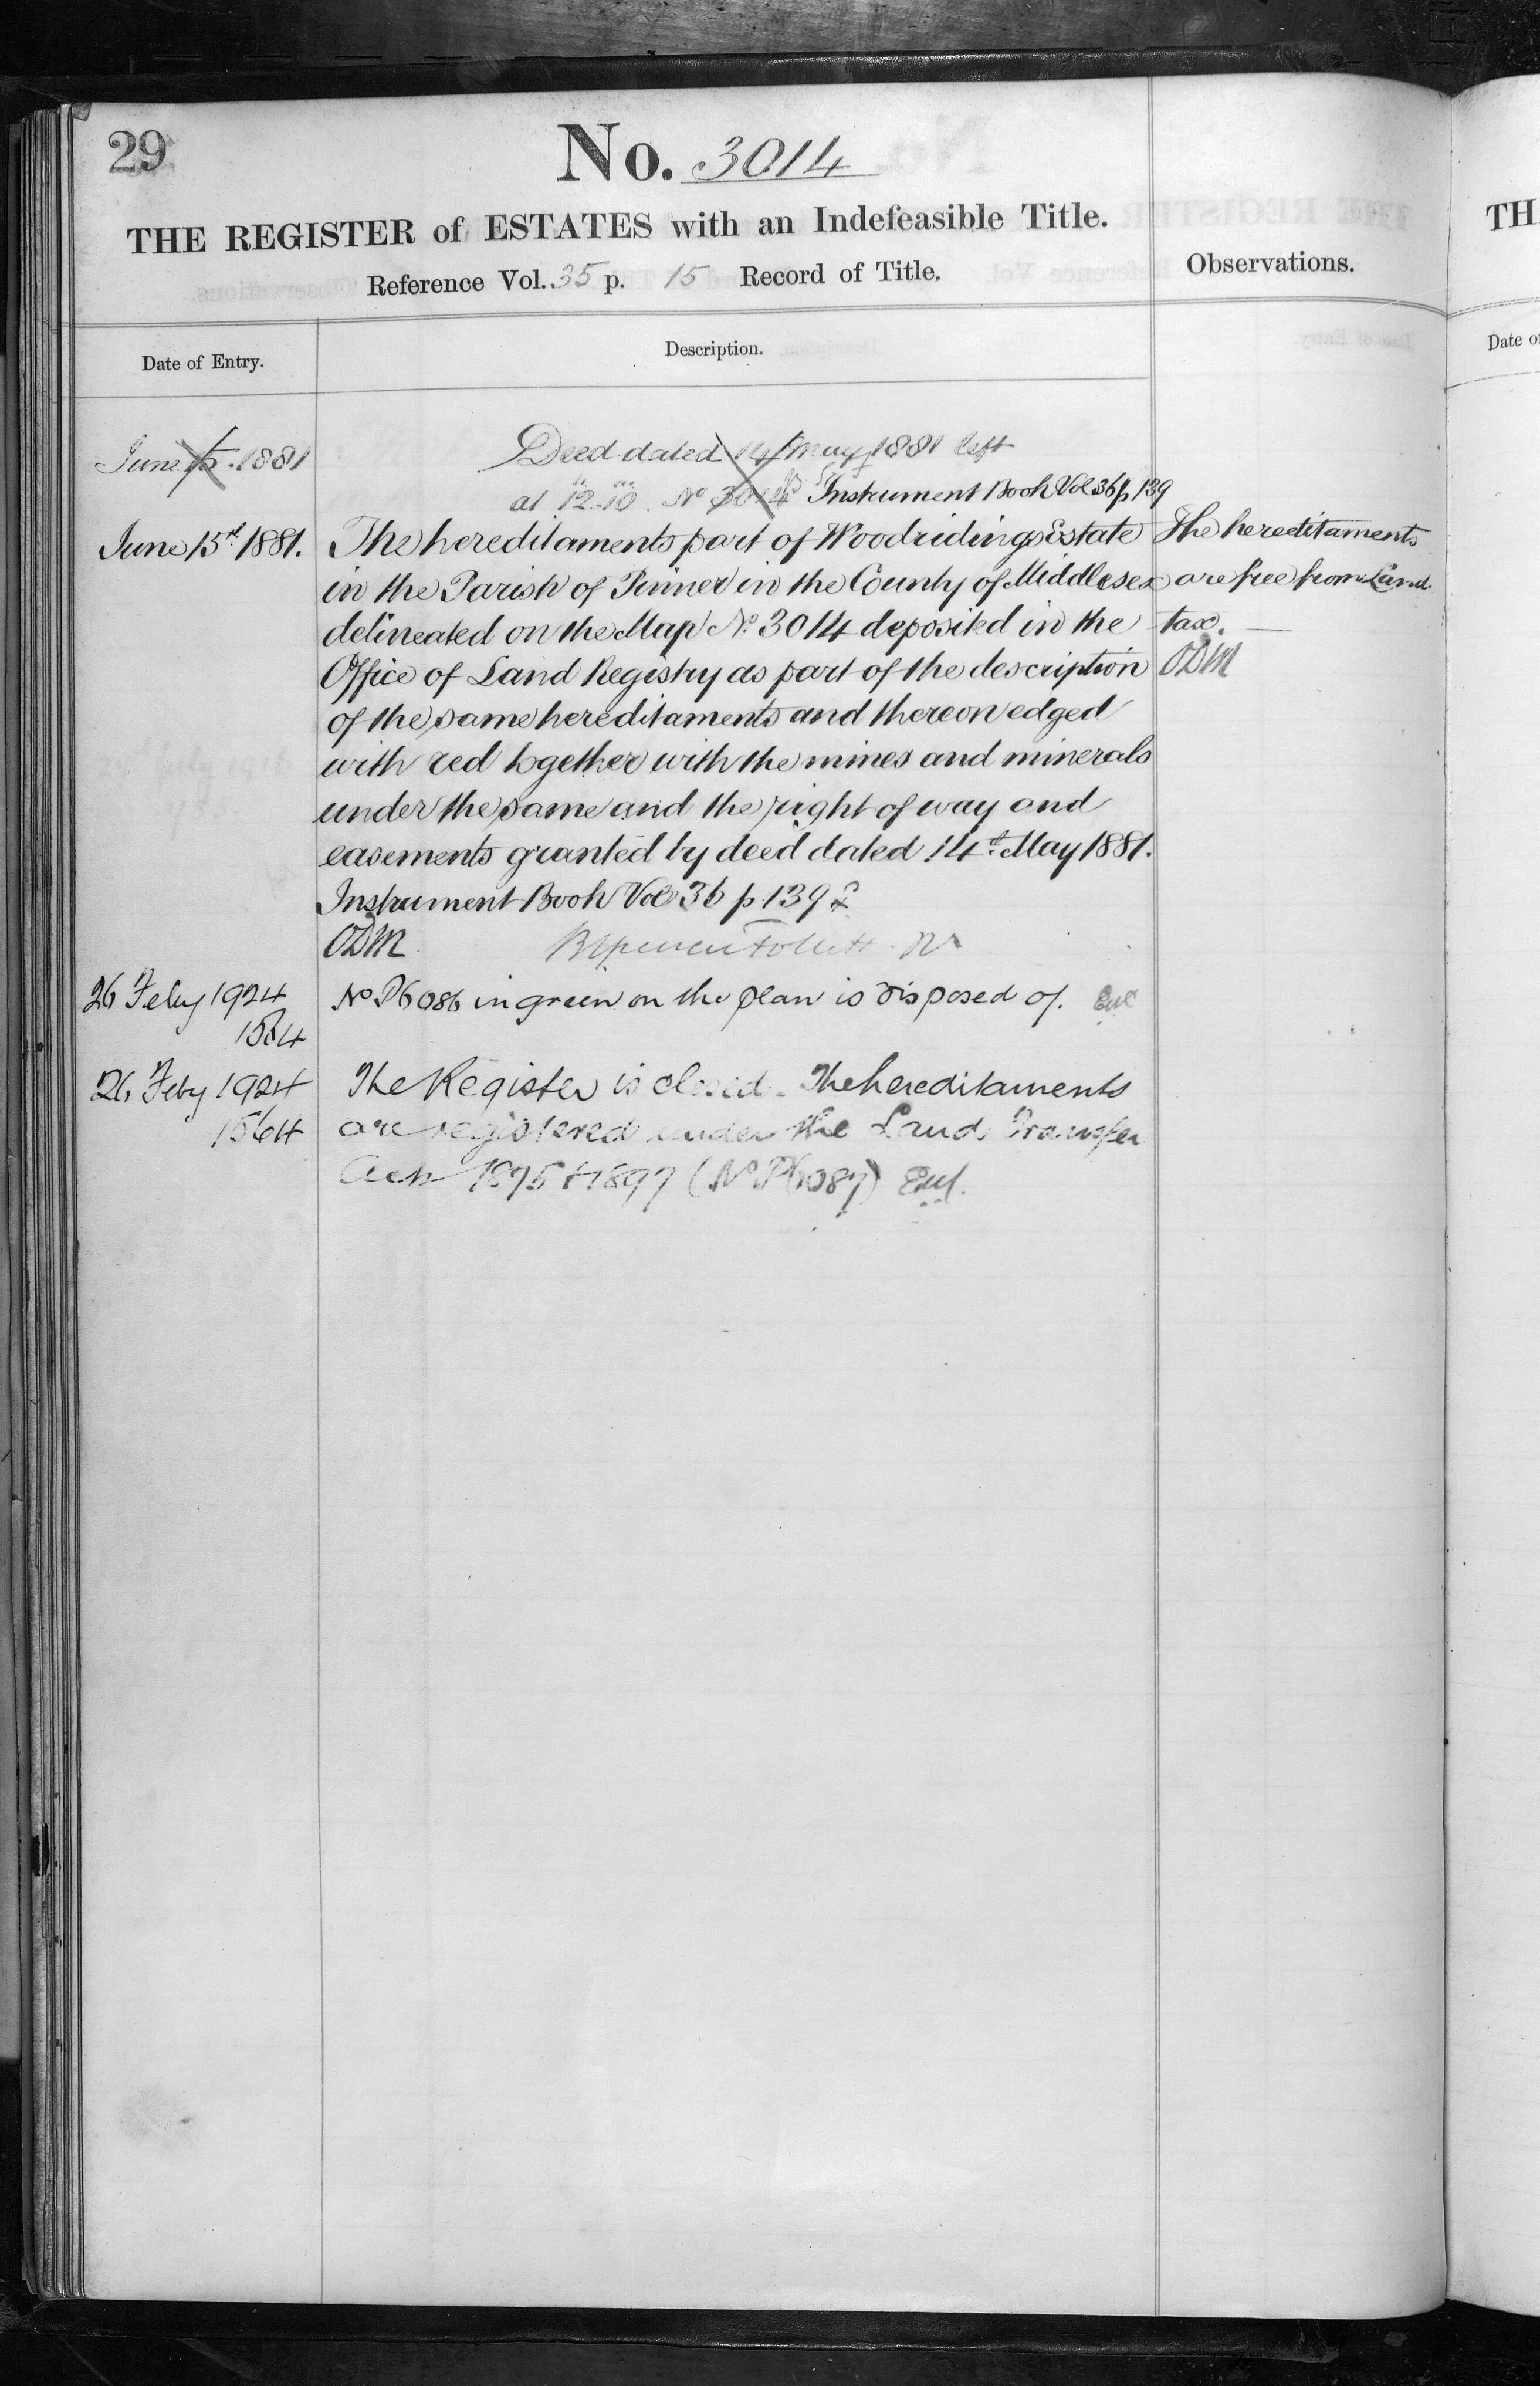 29
No. 3014
THE REGISTER of ESTATES with an Indefeasible Title.
Reference Vol. 35 p. 15 Record of Title.
Observations.
Date of Entry.
Description.
June 15. 1881
Deed dated 14 May 1881 left
at 12.10. No 3014 Instrument Book Vol 36 p 139
June 15th 1881.
The hereditaments part of Woodridings Estate
in the Parish of Pinner in the County of Middlesex
delineated on the Map No. 3014 deposited in the
Office of Land Registry as part of the description
of the same hereditaments and thereon edged
with red together with the mines and minerals
under the same and the right of way and
easements granted by deed dated 14th May 1881.
Instrument Book Vol 36 p 139
ODM
The hereditaments
are free from Land
tax.
ODM
Follett
26 Feby 1924
No P6086 in green on the plan is disposed of.
26 Feby 1924
1564
The Register is closed. The hereditaments
are registered under the Land Transfer
Acts 1875 & 1897 (No P6087)
TH
Date o